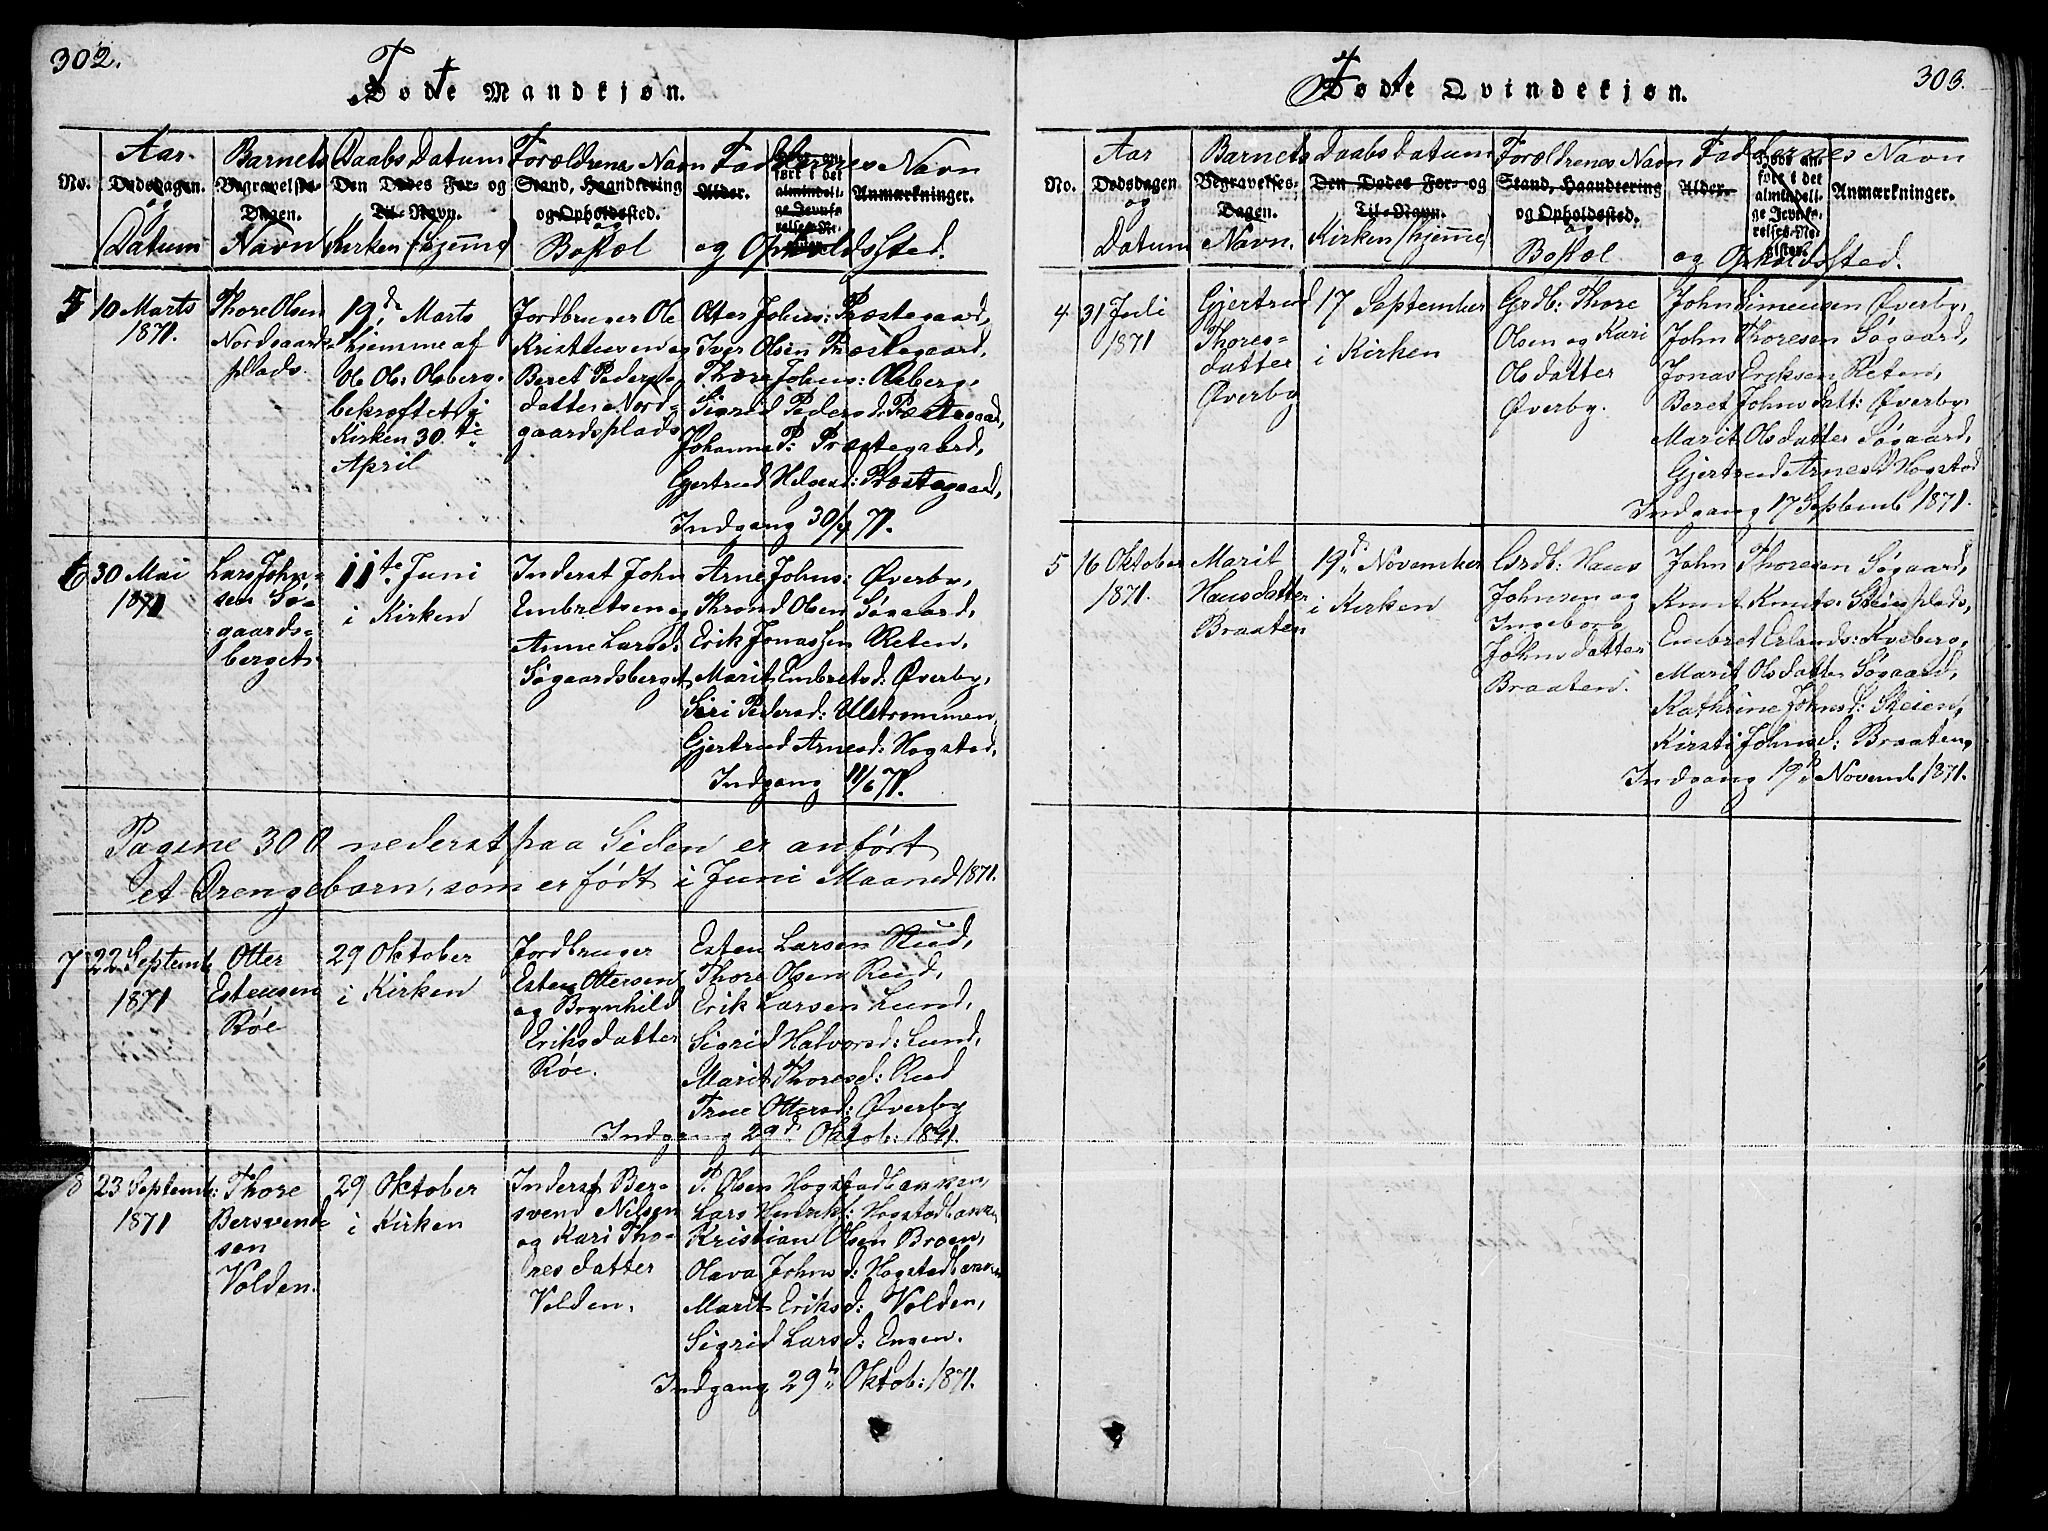 302.
Fødte Mandkjøn.
No.
Aar
Dødsdagen.
og
Datum
Barnets
Begravelses-
Dagen.
Navn
Daabs Datum
Den Dødes For- og
Til-Navn.
Kirken (hjemme)
Forældrenes Navn
Stand, Haandtering
og Opholdssted.
og
Bopæl
Faddernes Navn
Alder.
Anmærkninger.
og Opholdssted.
5
10 Marts
1871.
Thore Olsen
Nordgaards-
plads.
19de Marts
hjemme af
Ole Ols: Olsberg.
bekræftet i
Kirken 30.te
April
Jordbruger Ole
Kristensen og
Beret Peders-
datter Nord-
gaardsplads
Otter Johns: Præstegaard,
Iver Olsen Præstegaard,
Thore Johns: Olsberg,
Sigrid Pedersd: Præstegaard,
Johanna P: Præstegaard,
Gjertrud Helgesd: Præstegaard,
Indgang 30/4 71.
6
30 Mai
1871
Lars John-
sen Sø-
gaards-
berget.
11te Juni
i Kirken
Inderst John
Embretsen og
Anne Larsd:
Søgaardsberget
Arne Johns: Øverby,
Thrond Olsen Søgaard,
Erik Jonassen Reten,
Marit Embretsd: Øverby,
Siri Pedersd: Ulstrømmen,
Gjertrud Arnesd: Hogstad,
Indgang 11/6 71.
Pagine 300 nederst paa Siden er anført
et Drengebarn, som er født i Juni Maaned 1871.
7
22 Septemb
1871
Otter
Estensen
Røe
29 Oktober
i Kirken
Jordbruger
Esten Ottersen
og Brynhild
Eriksdatter
Røe.
Esten Larsen Rud,
Thore Olsen Rud,
Erik Larsen Lund,
Sigrid Halvorsd: Lund,
Marit Thoresd: Rud
Trine Ottersd: Øverby
Indgang 29d Oktob: 1871.
8
23 Septemb:
1871
Thore
Bersvend-
sen
Volden.
29 Oktober
i Kirken
Inderst Ber-
svend Nilsen
og Kari Tho-
resdatter
Volden.
P. Olsen Hogstadbakken,
Lars Henriks: Hogstadbakken
Kristian Olsen Broen,
Olava Johnsd: Hogstadbakken
Marit Eriksd: Volden,
Sigrid Larsd: Engen.
Indgang 29de Oktob: 1871.
303.
Fødte Qvindekjøn.
No.
Aar
Dødsdagen
og
Datum
Barnets
Begravelses-
Dagen.
Navn.
Daabs Datum
Den Dødes For- og
Til-Navn.
Kirken (hjemme)
Forældrenes Navn
Stand, Haandtering
og Opholdssted.
og
Bopæl
Faddernes Navn
Alder.
Anmærkninger.
og Opholdssted.
4
31 Juli
1871
Gjertrud
Thores-
datter
Øverby
17 September
i Kirken
Grdb: Thore
Olsen og Kari
Olsdatter
Øverby.
John Simensen Øverby,
John Thoresen Søgaard,
Jonas Eriksen Reten,
Beret Johnsdatt: Øverby.
Marit Olsdatter Søgaard,
Gjertrud Arnesd Hogstad
Indgang 17 Septemb 1871.
5
16 Oktober
1871.
Marit
Hansdatter
Braaten
19d November
i Kirken
Grdb: Hans
Johnsen og
Ingeborg
Johnsdatter
Braaten.
John Thoresen Søgaard,
Knut Knuts: Steinplads,
Embret Erlands: Kveberg,
Marit Olsdatter Søgaard,
Kathrine Johnsd: Steien,
Kirsti Johnsd: Braaten,
Indgang 19d Novemb 1871.